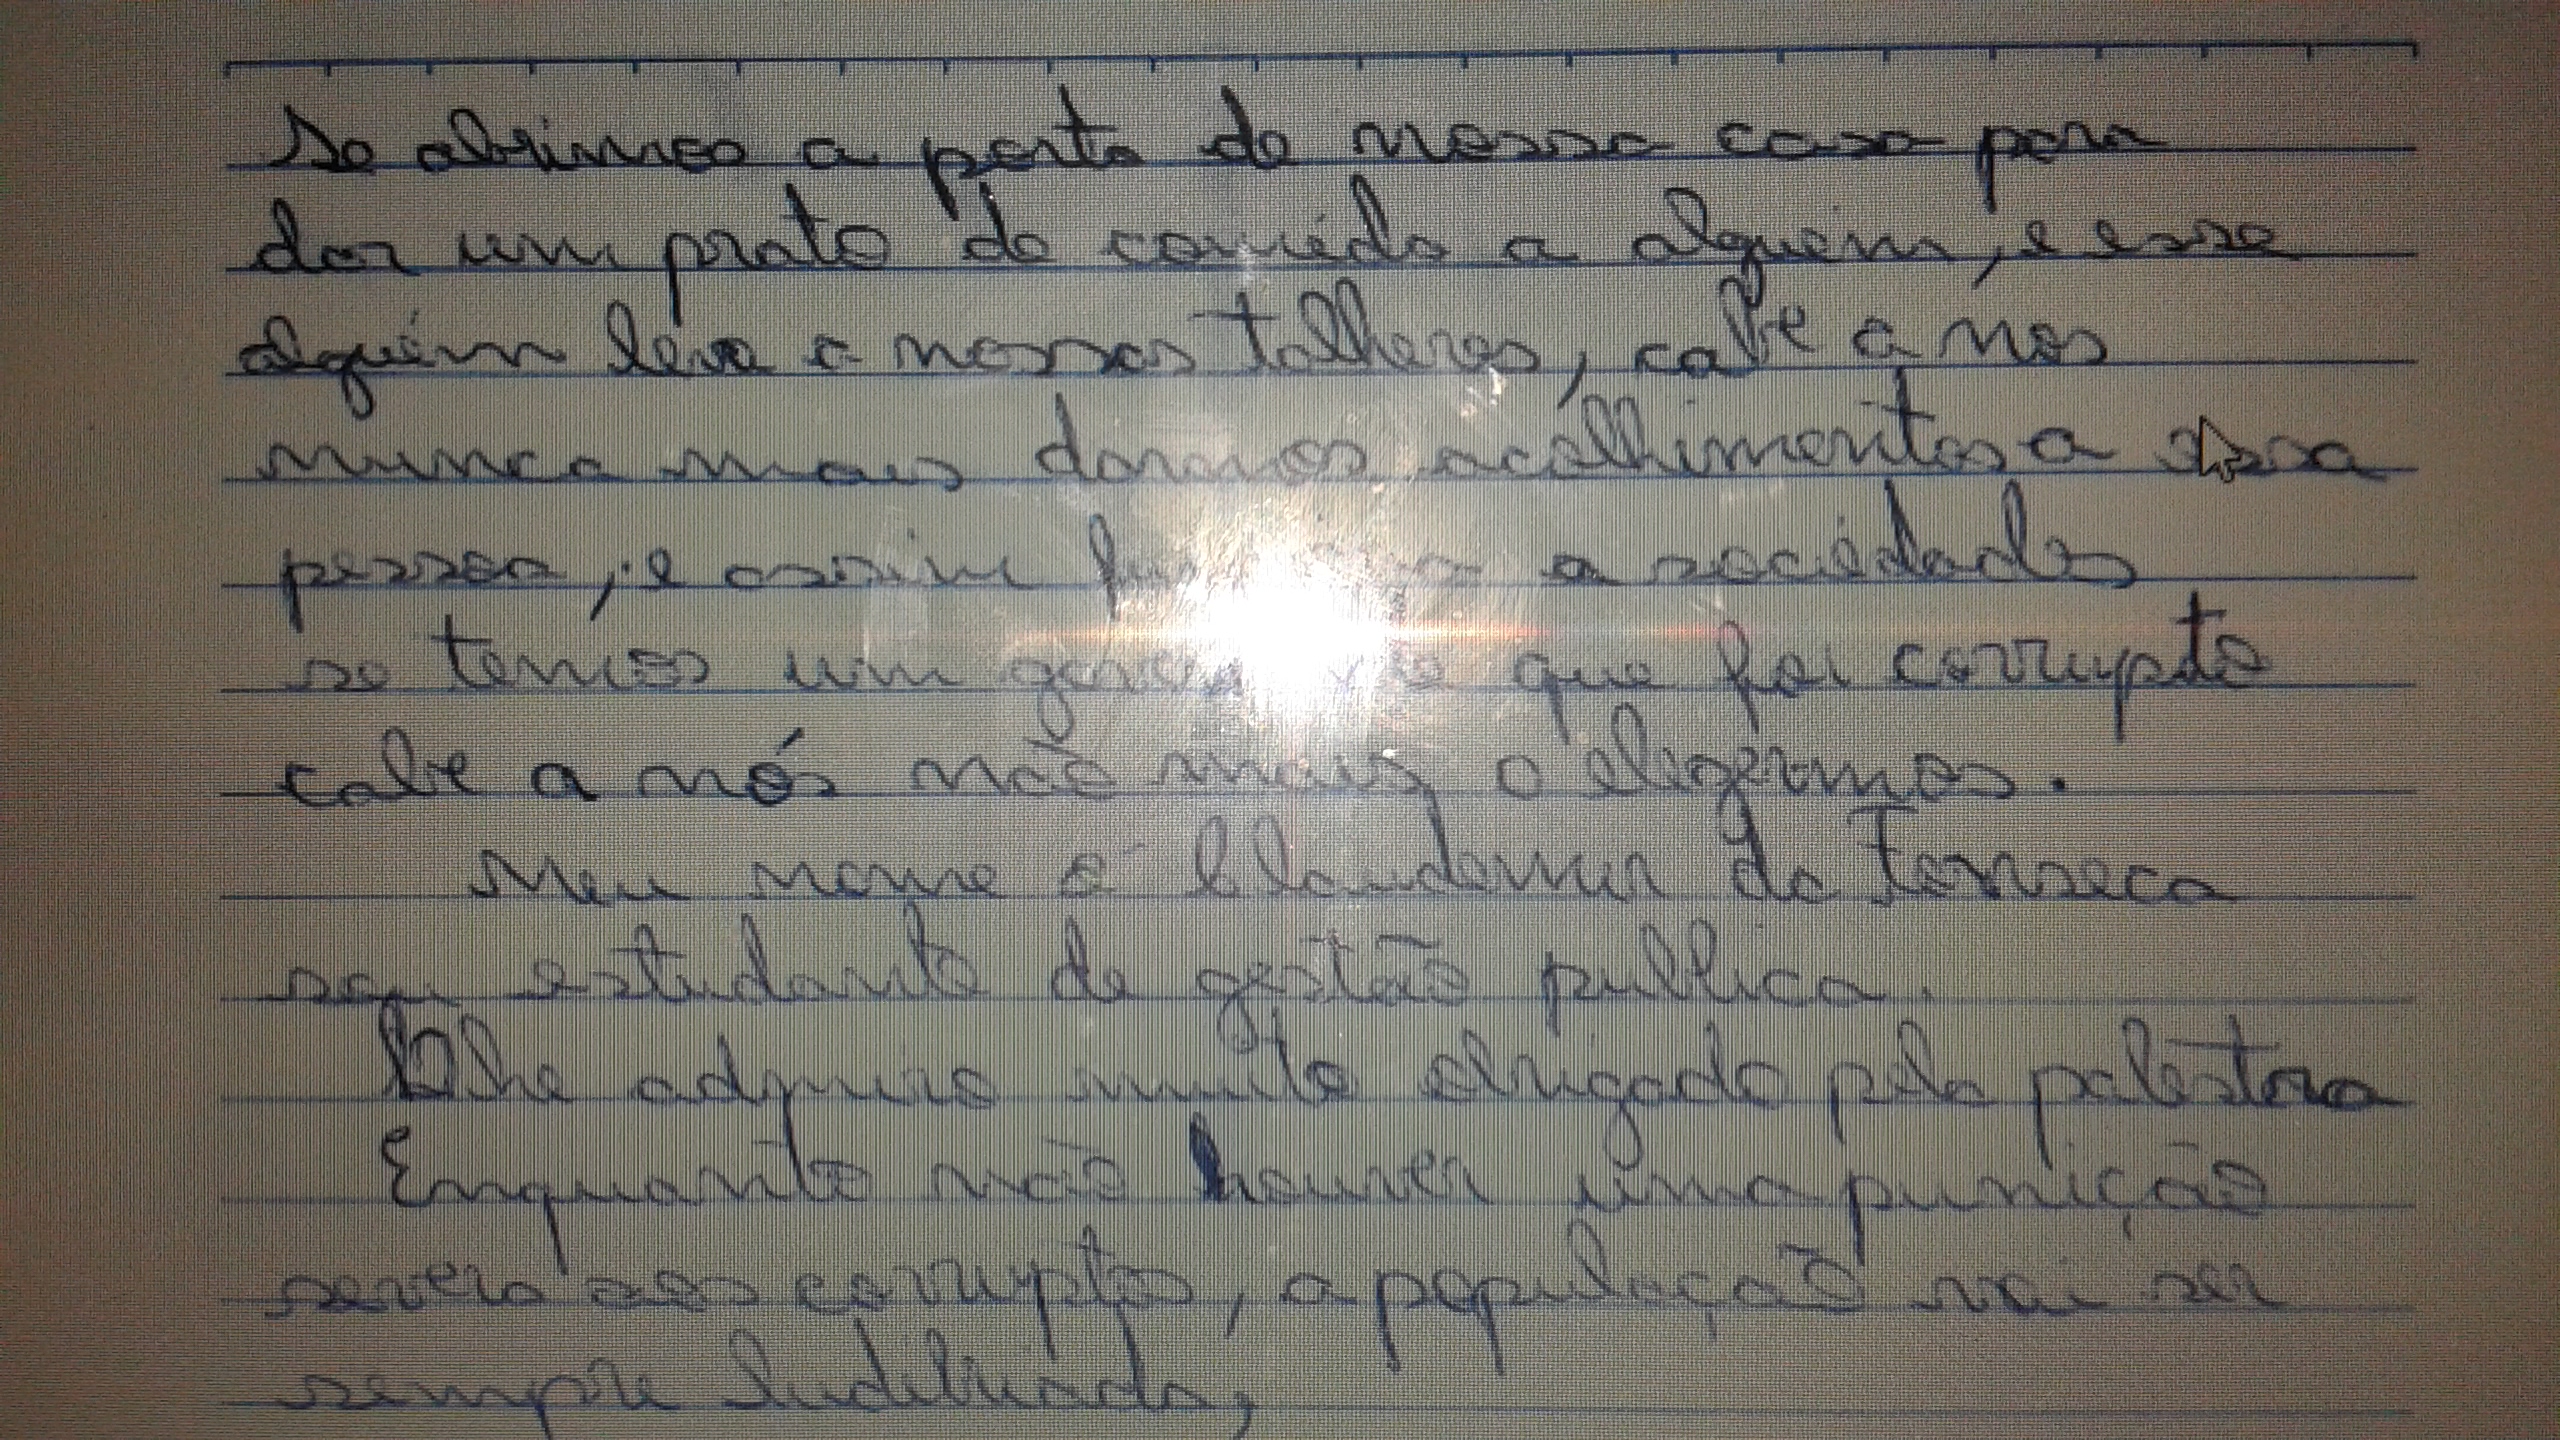 Se abrimos a porta de nossa casa para
dar um prato de comida a alguém, e esse
alguém leva a nossos talheres, cabe a nós
nunca mais darmos acolhimentos a essa
pessoa, e assim a sociedade
se temos um que foi corrupto
cabe a nós não mais o elegermos.
Meu nome é Claudemir da Fonseca
sou estudante de gestão publica.
lhe admiro muito obrigado pela palestra
Enquanto não houver uma punição
severa aos corruptos, a população vai ser
sempre ludibriada,